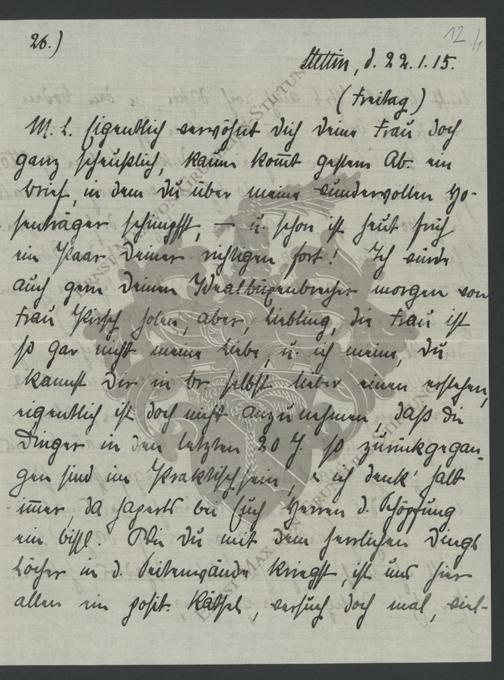 26.)
12
Stettin, d. 22.1.15.
(Freitag)
M. L. Eigentlich verwöhnt Dich Deine Frau doch
ganz scheußlich, kaum kommt gestern Ab. ein
Brief, in dem Du über meine wundervollen Ho-
senträger schimpfst, – u. schon ist heut früh
ein Paar Deiner richtigen fort! Ich würde
auch gern Deinen morgen von
Frau Kirsch holen, aber, Liebling, die Frau ist
so gar nicht meine Liebe, u. ich meine, Du
kannst Dir in Br. selbst lieber einen erstehen,
eigentlich ist doch nicht anzunehmen, daß die
Dinger in den letzten 20 J. so zurückgegan-
gen sind im Praktischsein, ich denk' halt
immer da haperts bei Euch Herren d. Schöpfung
ein bissl. Wie Du mit dem herrlichen Dings
Löcher in d. Seitenwände kriegst, ist uns hier
allen ein posit. Rätsel, versuch doch mal, viel-